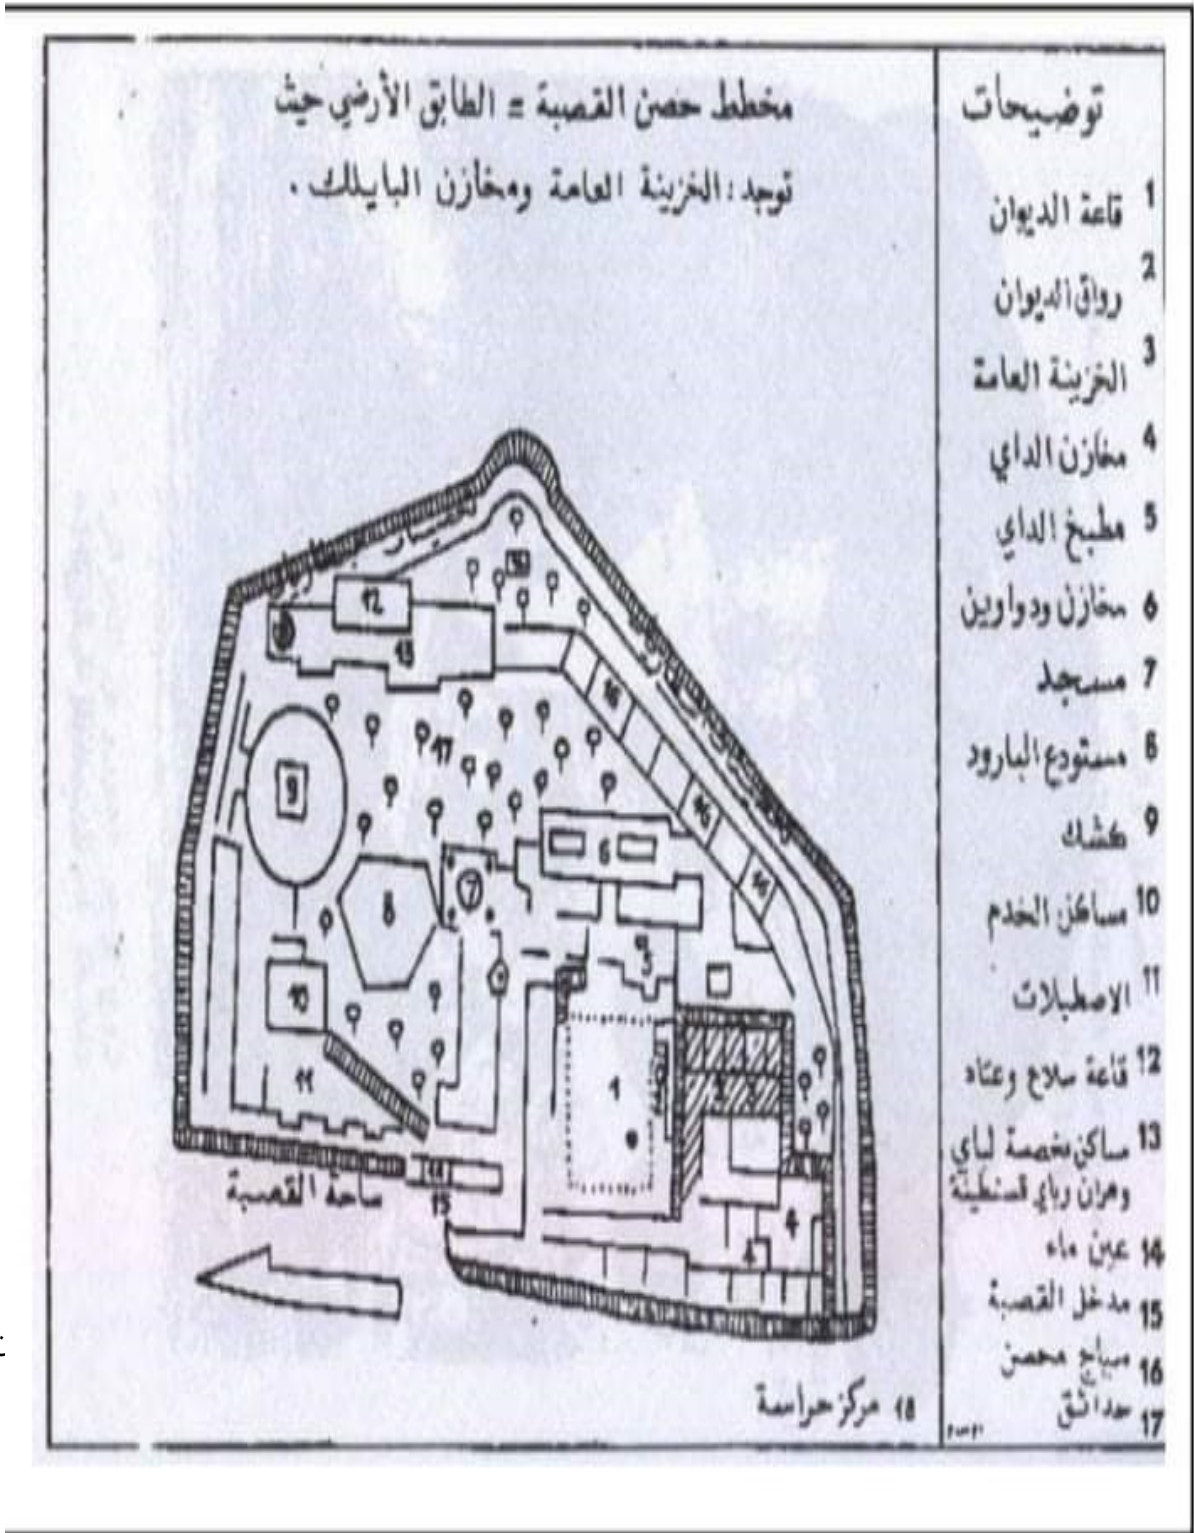 مخطط حصن القصبة = الطابق الأرضي حيث
توجد : الخزينة العامة ومخازن البايلك .
توضيحات
1 قاعة الديوان
2 رواق الديوان
3 الخزينة العامة
4 مخازن الداي
5 مطبخ الداي
6 مخازن ودواوين
7 مسجد
8 مستودع البارود
9 كشك
10 مساكن الخدم
11 الاصطبلات
12 قاعة سلاح وعتاد
13 مساكن مخصصة لباي
وهران وباي قسنطينة
14 عين ماء
15 مدخل القصبة
16 سياج محصن
17 حدائق
18 مركز حراسة
12
13
16
17
9
16
6
7
8
16
5
10
1
11
14
15
4
4
ساحة القصبة